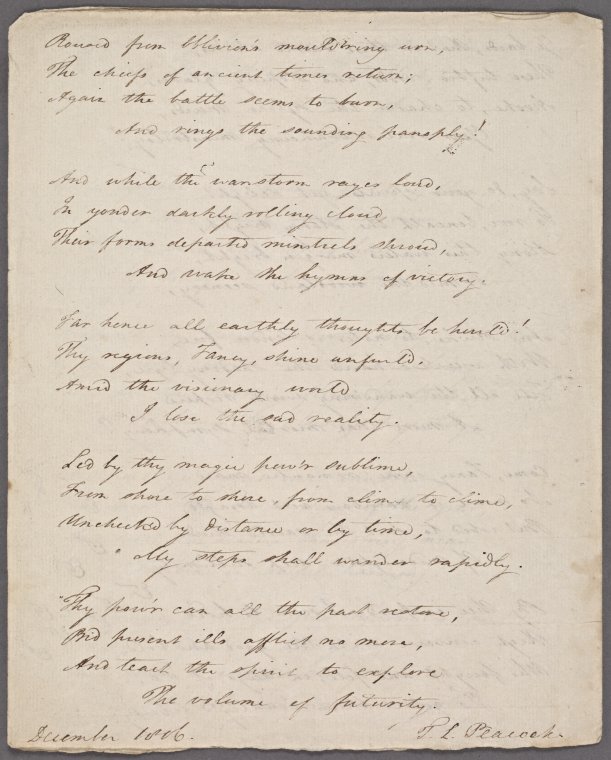 Rous'd from Oblivion's mould'ring urn,
The chiefs of ancient times return;
Again the battle seems to burn,
And rings the sounding panoply!
And while the war-storm rages loud,
In yonder darkly rolling cloud
Their forms departed minstrels shroud,
And wake the hymns of victory.
Far hence all earthly thoughts be hurl'd!
Thy regions, Fancy, shine unfurl'd.
Amid the visionary world
I lose the sad reality.
Led by thy magic pow'r sublime,
From shore to shore, from clime to clime,
Uncheck'd by distance or by time,
My steps shall wander rapidly.
Thy pow'r can all the past restore,
Bid present ills afflict no more,
And teach the spirit to explore
The volume of futurity.
December 1806. T. L. Peacock.